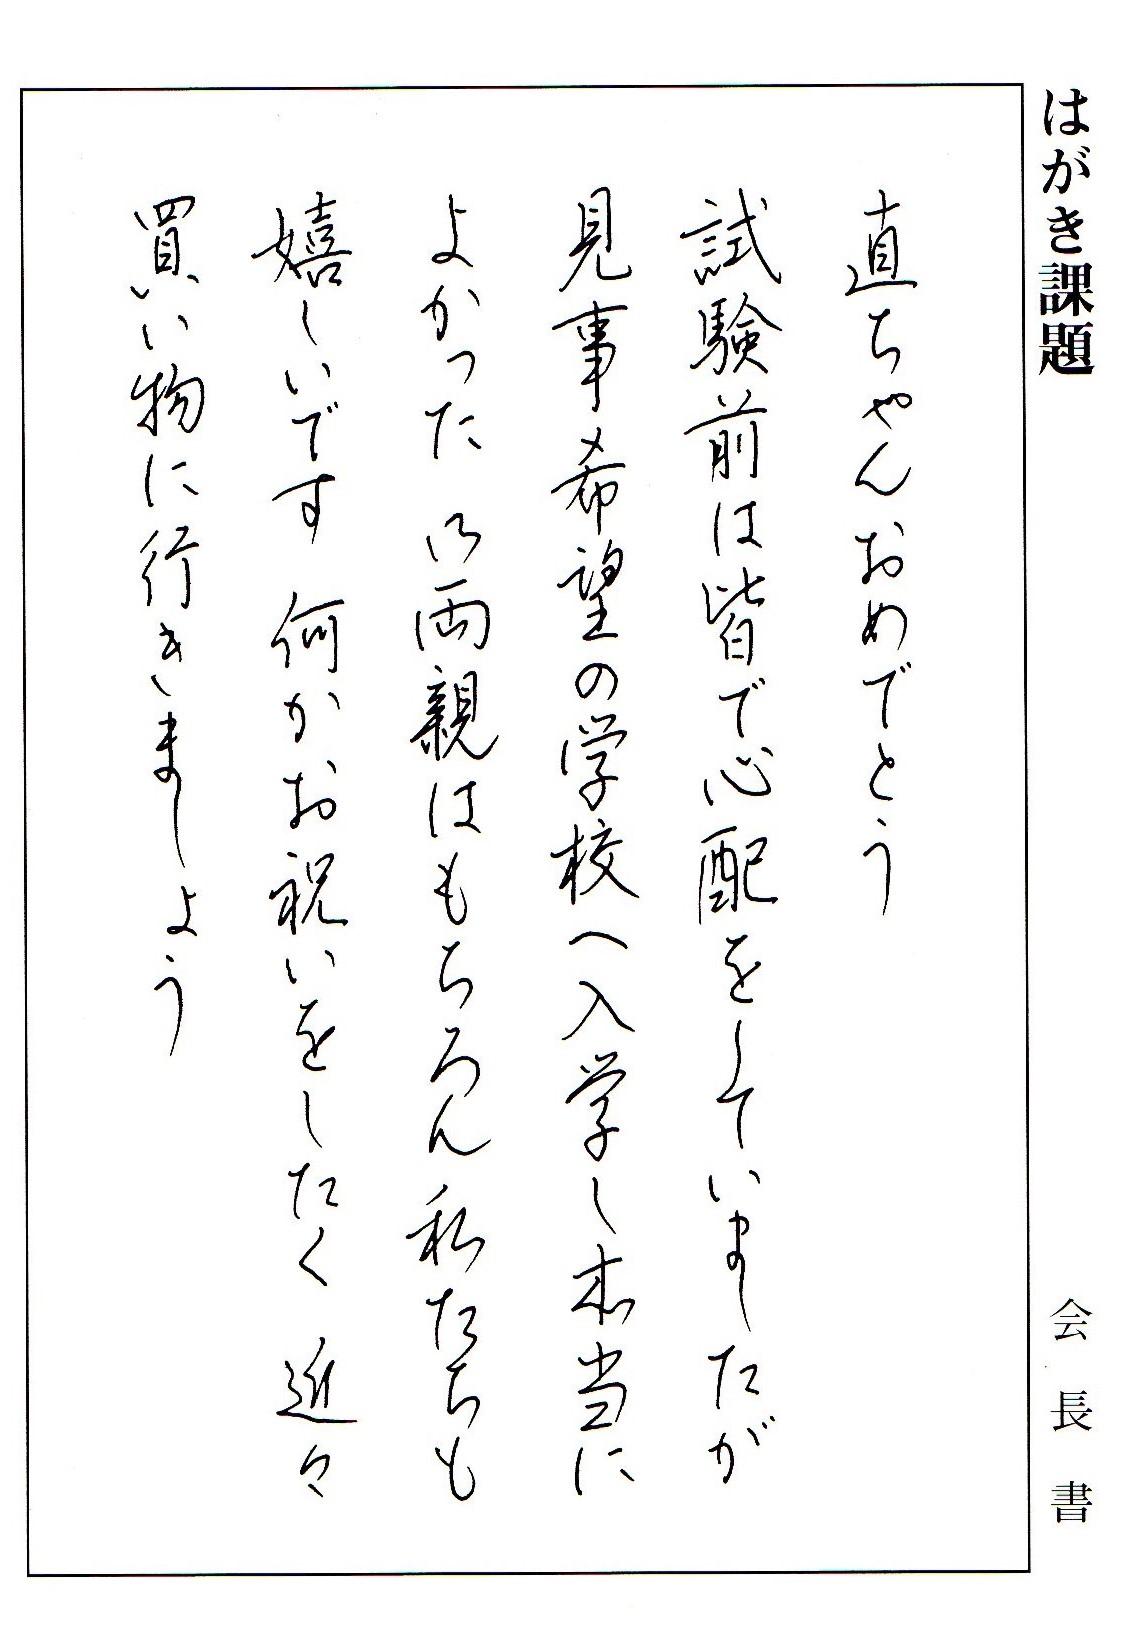 はがき課題
会長書
直ちゃんおめでとう
試験前は皆で心配をしていましたが
見事希望の学校へ入学し本当に
よかった 御両親はもちろん私たちも
嬉しいです 何かお祝いをしたく 近々
買い物に行きましょう